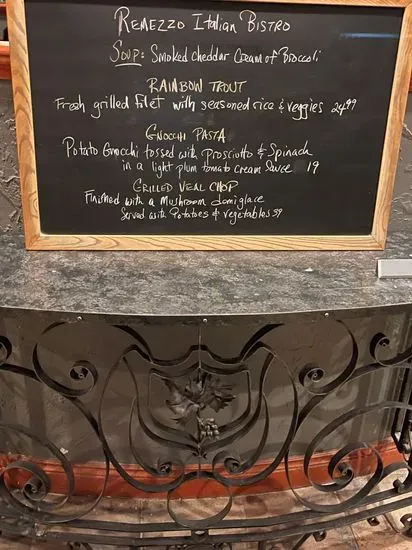 Remezzo Italian Bistro
Soup: Smoked cheddar Cream of Broccoli
RAINBOW TROUT
Fresh grilled filet with seasoned rice & veggies 24.99
GNOCCHI PASTA
Potato Gnocchi tossed with Prosciutto & Spinach
in a light plum tomato cream sauce 19
GRILLED VEAL CHOP
Finished with a Mushroom demiglace
Served with Potatoes & vegetables 59